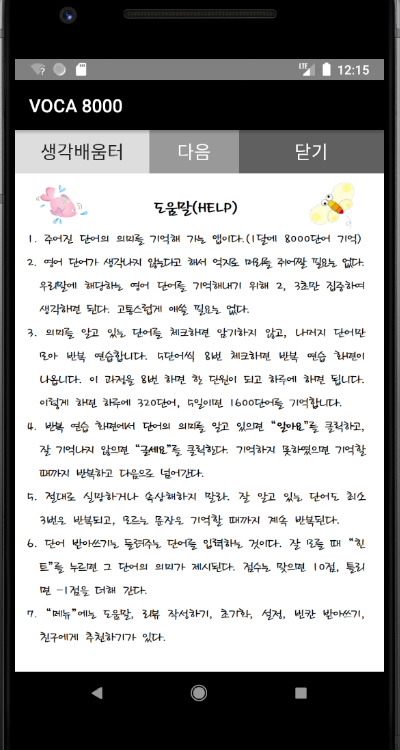 LTE 12:15
VOCA 8000
생각배움터 다음 닫기
도움말(HELP)
1. 주어진 단어의 의미를 기억해 가는 앱이다.(1달에 8000단어 기억)
2. 영어 단어가 생각나지 않는다고 해서 억지로 머리를 쥐어짤 필요는 없다.
우리말에 해당하는 영어 단어를 기억해내기 위해 2, 3초만 집중하여
생각하면 된다. 고통스럽게 애쓸 필요는 없다.
3. 의미를 알고 있는 단어를 체크하면 암기하지 않고, 나머지 단어만
모아 반복 연습합니다. 5단어씩 8번 체크하면 반복 연습 화면이
나옵니다. 이 과정을 8번 하면 한 단원이 되고 하루에 하면 됩니다.
이렇게 하면 하루에 320단어, 5일이면 1600단어를 기억합니다.
4. 반복 연습 화면에서 단어의 의미를 알고 있으면 "알아요"를 클릭하고,
잘 기억나지 않으면 "글쎄요"를 클릭한다. 기억하지 못하였으면 기억할
때까지 반복하고 다음으로 넘어간다.
5. 절대로 실망하거나 속상해하지 말라. 잘 알고 있는 단어도 최소
3번은 반복되고, 모르는 문장은 기억할 때까지 계속 반복된다.
6. 단어 받아쓰기는 들려주는 단어를 입력하는 것이다. 잘 모를 때 "힌
트"를 누르면 그 단어의 의미가 제시된다. 점수는 맞으면 10점, 틀리
면 -1점을 더해 간다.
7. "메뉴"에는 도움말, 리뷰 작성하기, 초기화, 설정, 빈칸 받아쓰기,
친구에게 추천하기가 있다.